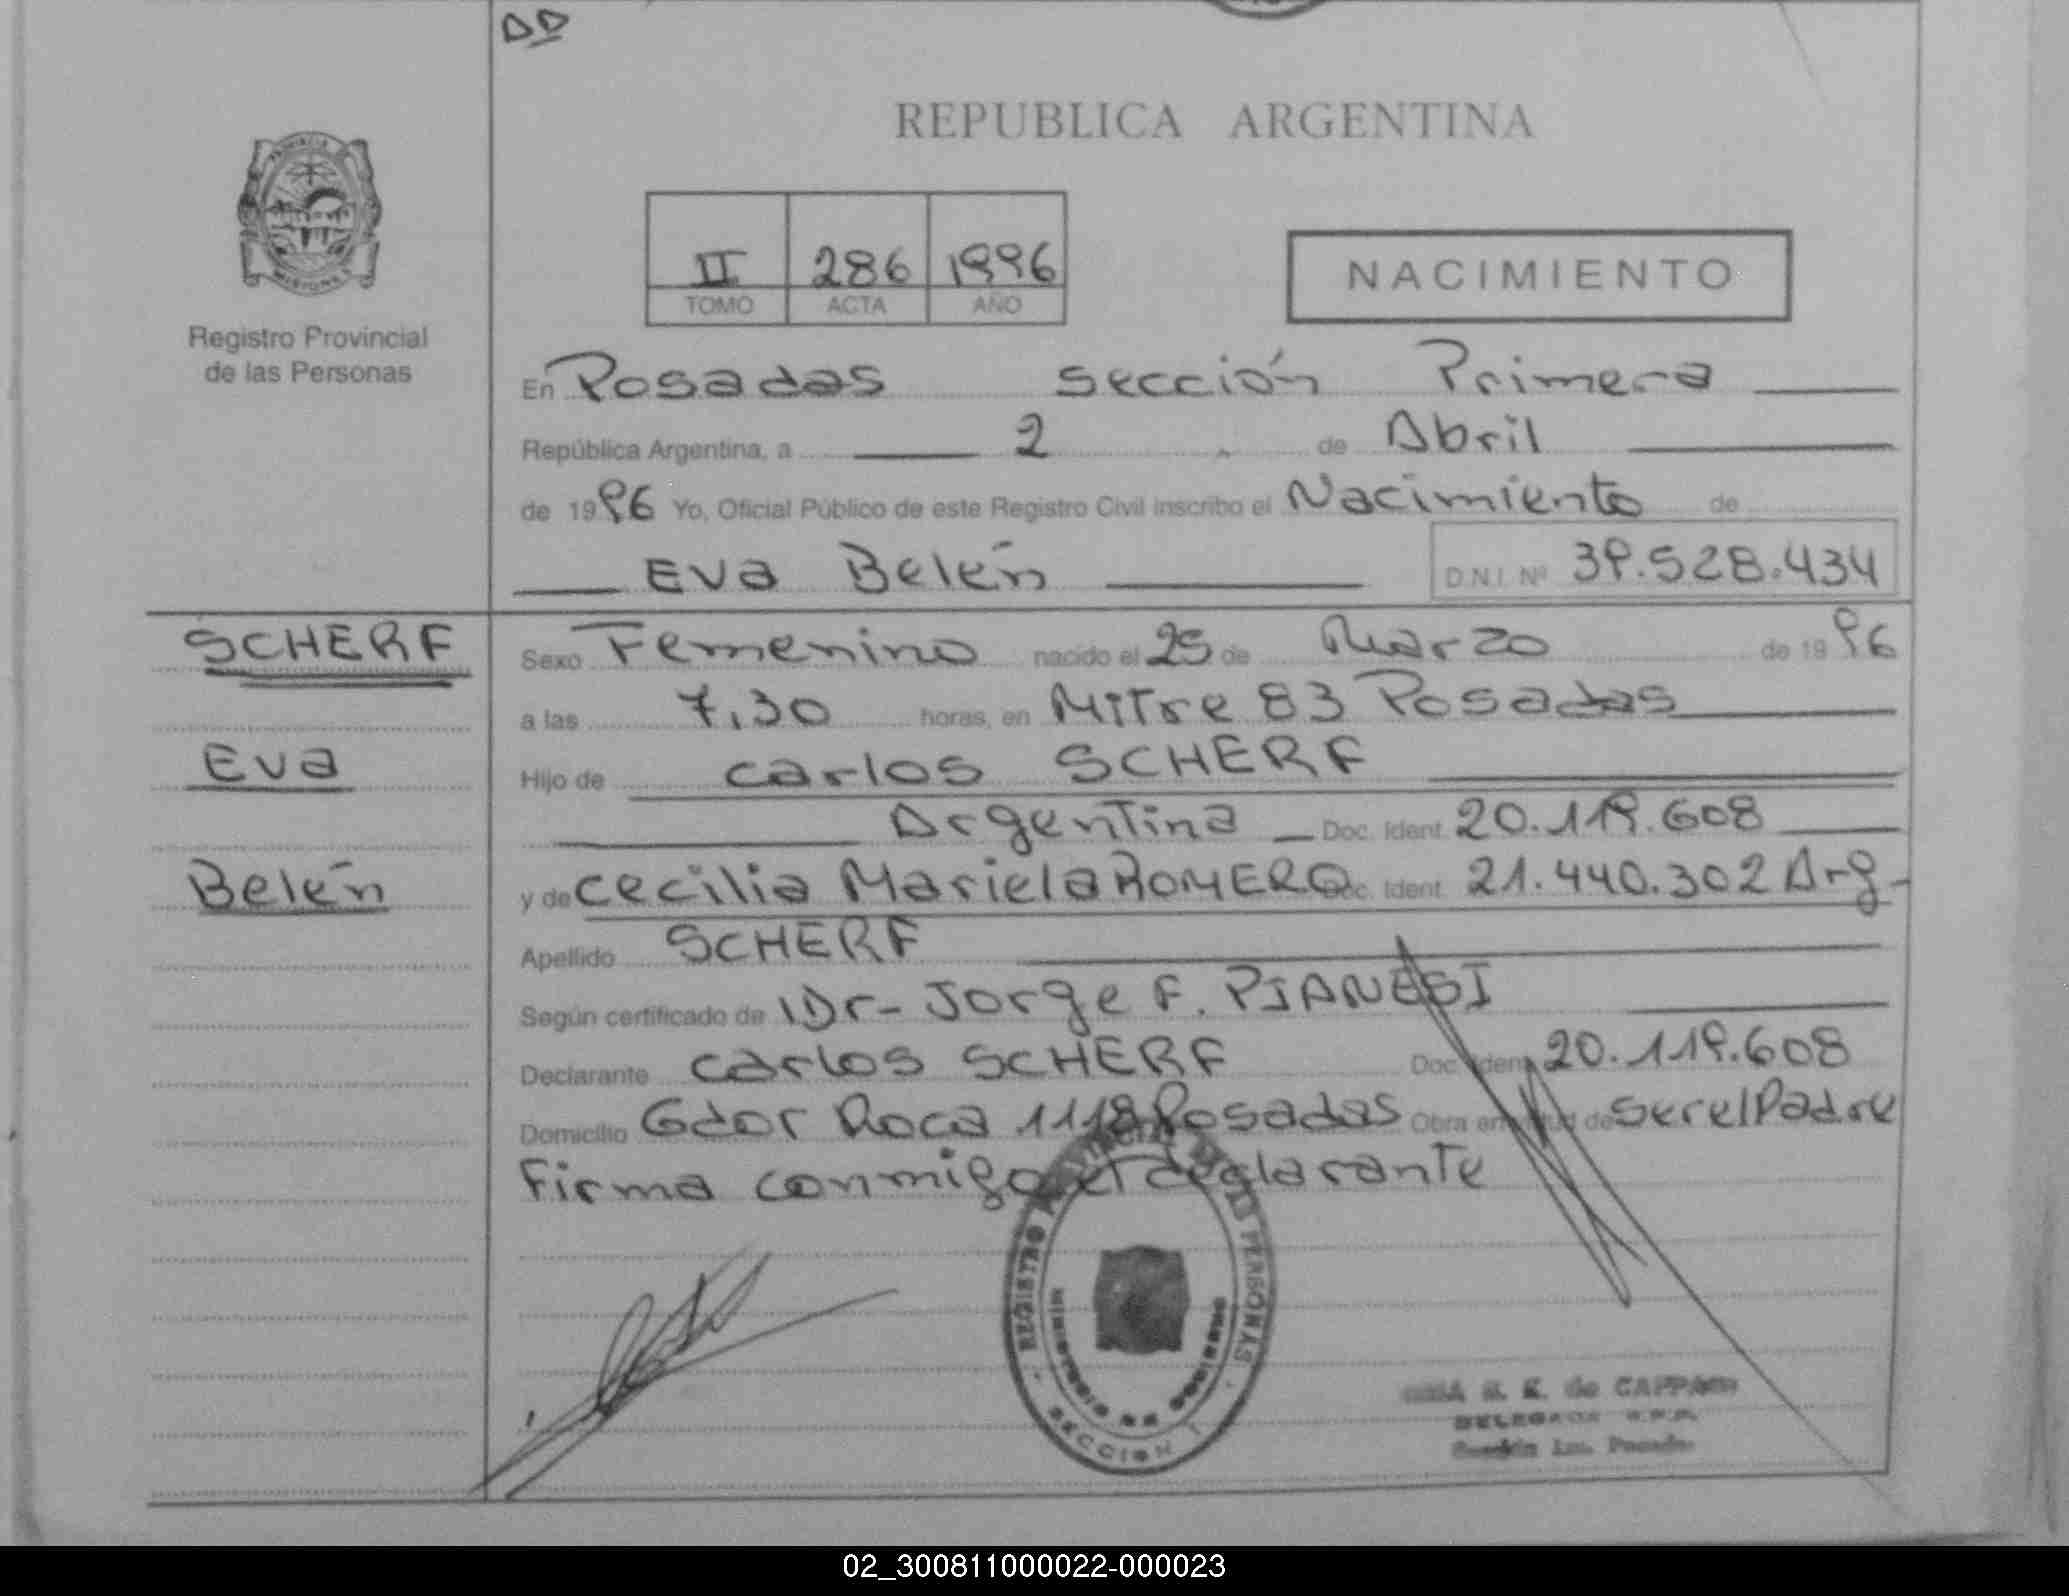 DD
REPUBLICA ARGENTINA
PROVINCIA DE MISIONES
Registro Provincial
de las Personas
II 286 1996
TOMO ACTA AÑO
NACIMIENTO
En Posadas sección Primera
República Argentina, a 2 de Abril
de 1996 Yo, Oficial Público de este Registro Civil inscribo el Nacimiento de
Eva Belén D.N.I. Nº 39.528.434
SCHERF
Eva
Belén
Sexo Femenino nacido el 25 de Marzo de 1996
a las 7,30 horas, en Mitre 83 Posadas
Hijo de carlos SCHERF
Argentina Doc. Ident. 20.119.608
y de cecilia Mariela ROMERO Doc. Ident. 21.440.302 Arg-
Apellido SCHERF
Según certificado de Dr- Jorge F. PIANESI
Declarante carlos SCHERF Doc. Ident. 20.119.608
Domicilio Gdor Roca 1118 Posadas Obra en virtud de ser el Padre
Firma conmigo el declarante
REGISTRO PERSONAS
MINISTERIO DE GOBIERNO
SECCION 1
de CAPPA
DELEGADA R.P.P.
Sección 1ra. Posadas
02_300811000022-000023